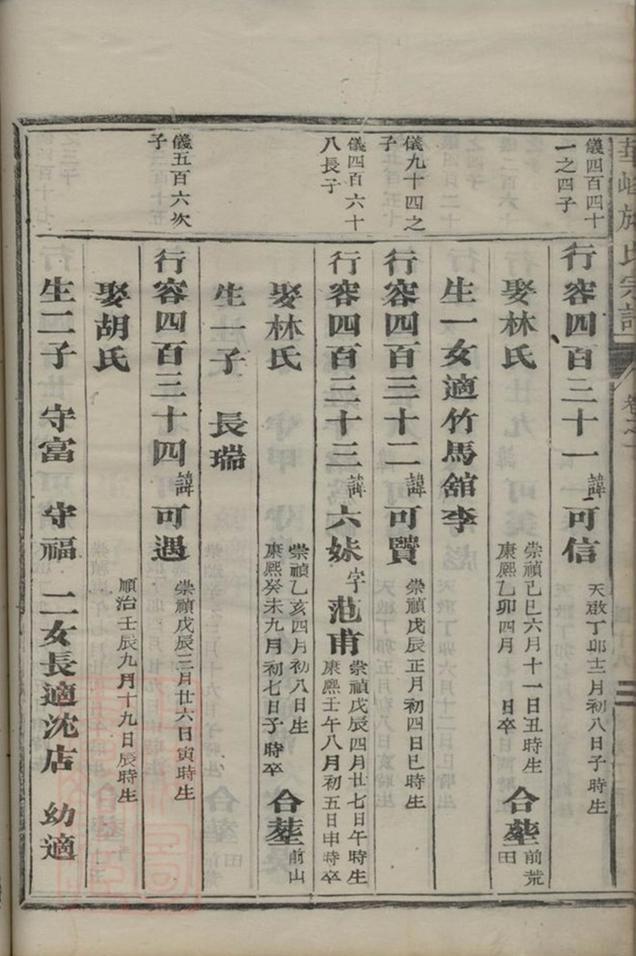 氏宗譜
卷之一
三
儀四百四十
一之四子
行容四百三十一 諱可信 天啟丁卯十二月初八日子時生
娶林氏 崇禎己巳六月十一日丑時生
康熙乙卯四月 日卒
合塟前荒
田
生一女適竹馬舘李
儀九十四之
子
行容四百三十二 諱可贊 崇禎戊辰正月初四日巳時生
儀四百六十
八長子
行容四百三十三 諱六妹 字范甫 崇禎戊辰四月廿七日午時生
康熙壬午八月初五日申時卒
娶林氏 崇禎乙亥四月初八日生
康熙癸未九月初七日子時卒
合塟前山
生一子 長瑞
儀五百六次
子
行容四百三十四 諱可遇 崇禎戊辰三月廿六日寅時生
娶胡氏 順治壬辰九月十九日辰時生
生二子 守富 守福 二女長適沈店 幼適